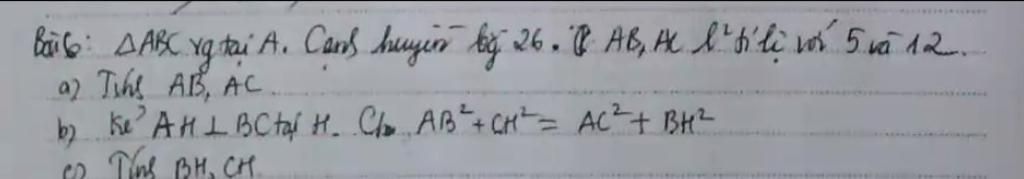 Bài 6: △ABC vg tại A. Cạnh huyền bg 26. AB, AC l² tỉ lệ với 5 và 12.
a) Tính AB, AC
b) Kẻ AH ⊥ BC tại H. Cm AB² + CH² = AC² + BH²
c) Tính BH, CH